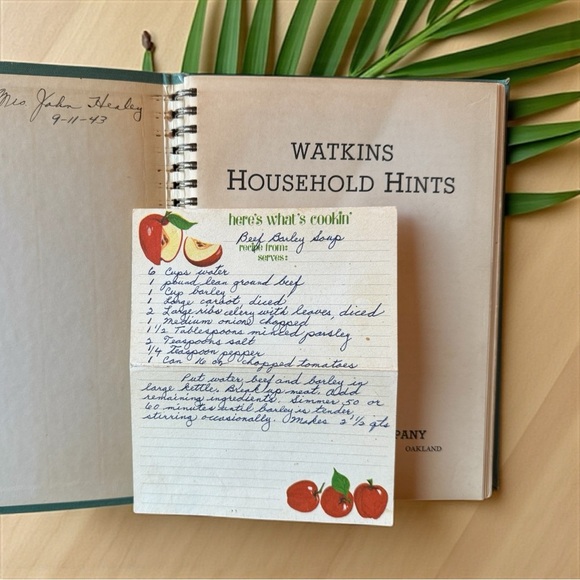 Mrs John Healey
9-11-43
WATKINS
HOUSEHOLD HINTS
here's what's cookin'
Beef Barley Soup
recipe from:
serves:
6 Cups water
1 pound lean ground beef
1 Cup barley
1 large carrot, diced
2 Large ribs celery with leaves, diced
1 Medium onion chopped
1 1/2 Tablespoons minced parsley
2 Teaspoons salt
1/4 Teaspoon pepper
1 Can 16 oz chopped tomatoes
Put water beef and barley in
large kettle. Break up meat. Add
remaining ingredients. Simmer 50 or
60 minutes until barley is tender,
stirring occasionally. Makes 2 1/2 qts
PANY
OAKLAND